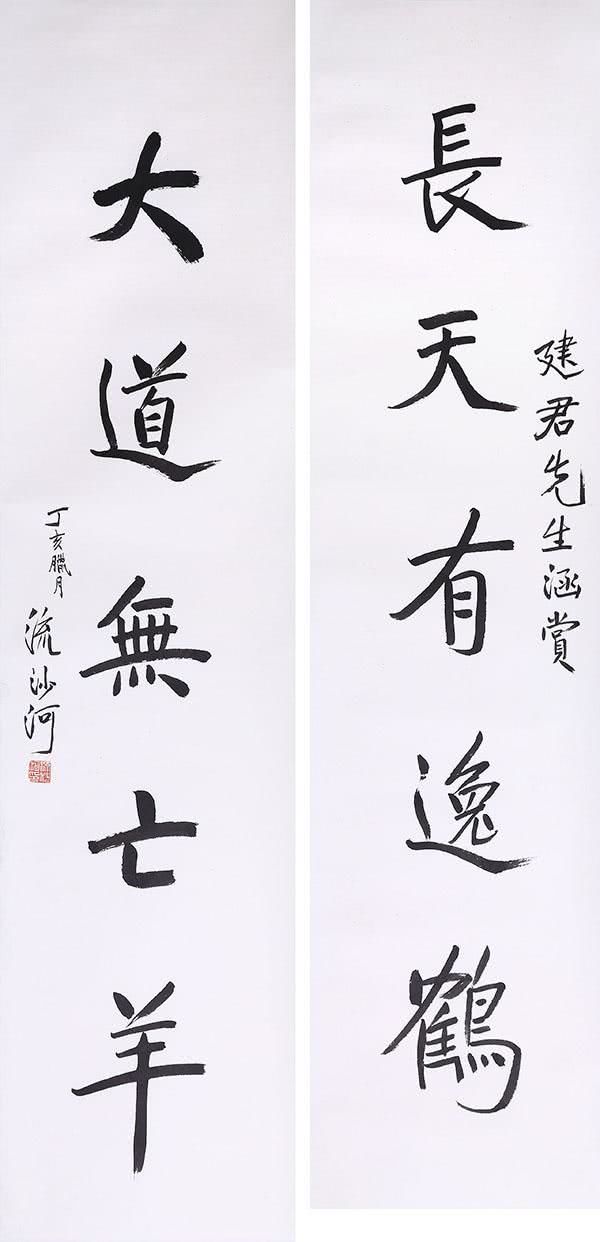 建君先生涵賞
長天有逸鶴
大道無亡羊
丁亥臘月
流沙河